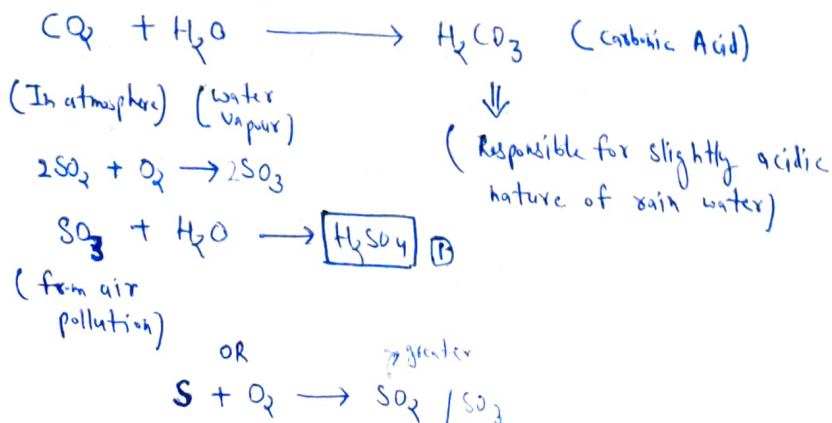 CO₂ + H₂O → H₂CO₃ (Carbonic Acid)
(In atmosphere) (water vapour)
⇓
(Responsible for slightly acidic
nature of rain water)
2SO₂ + O₂ → 2SO₃
SO₃ + H₂O → H₂SO₄ Ⓑ
(from air
pollution)
OR
→ greater
S + O₂ → SO₂ / SO₃